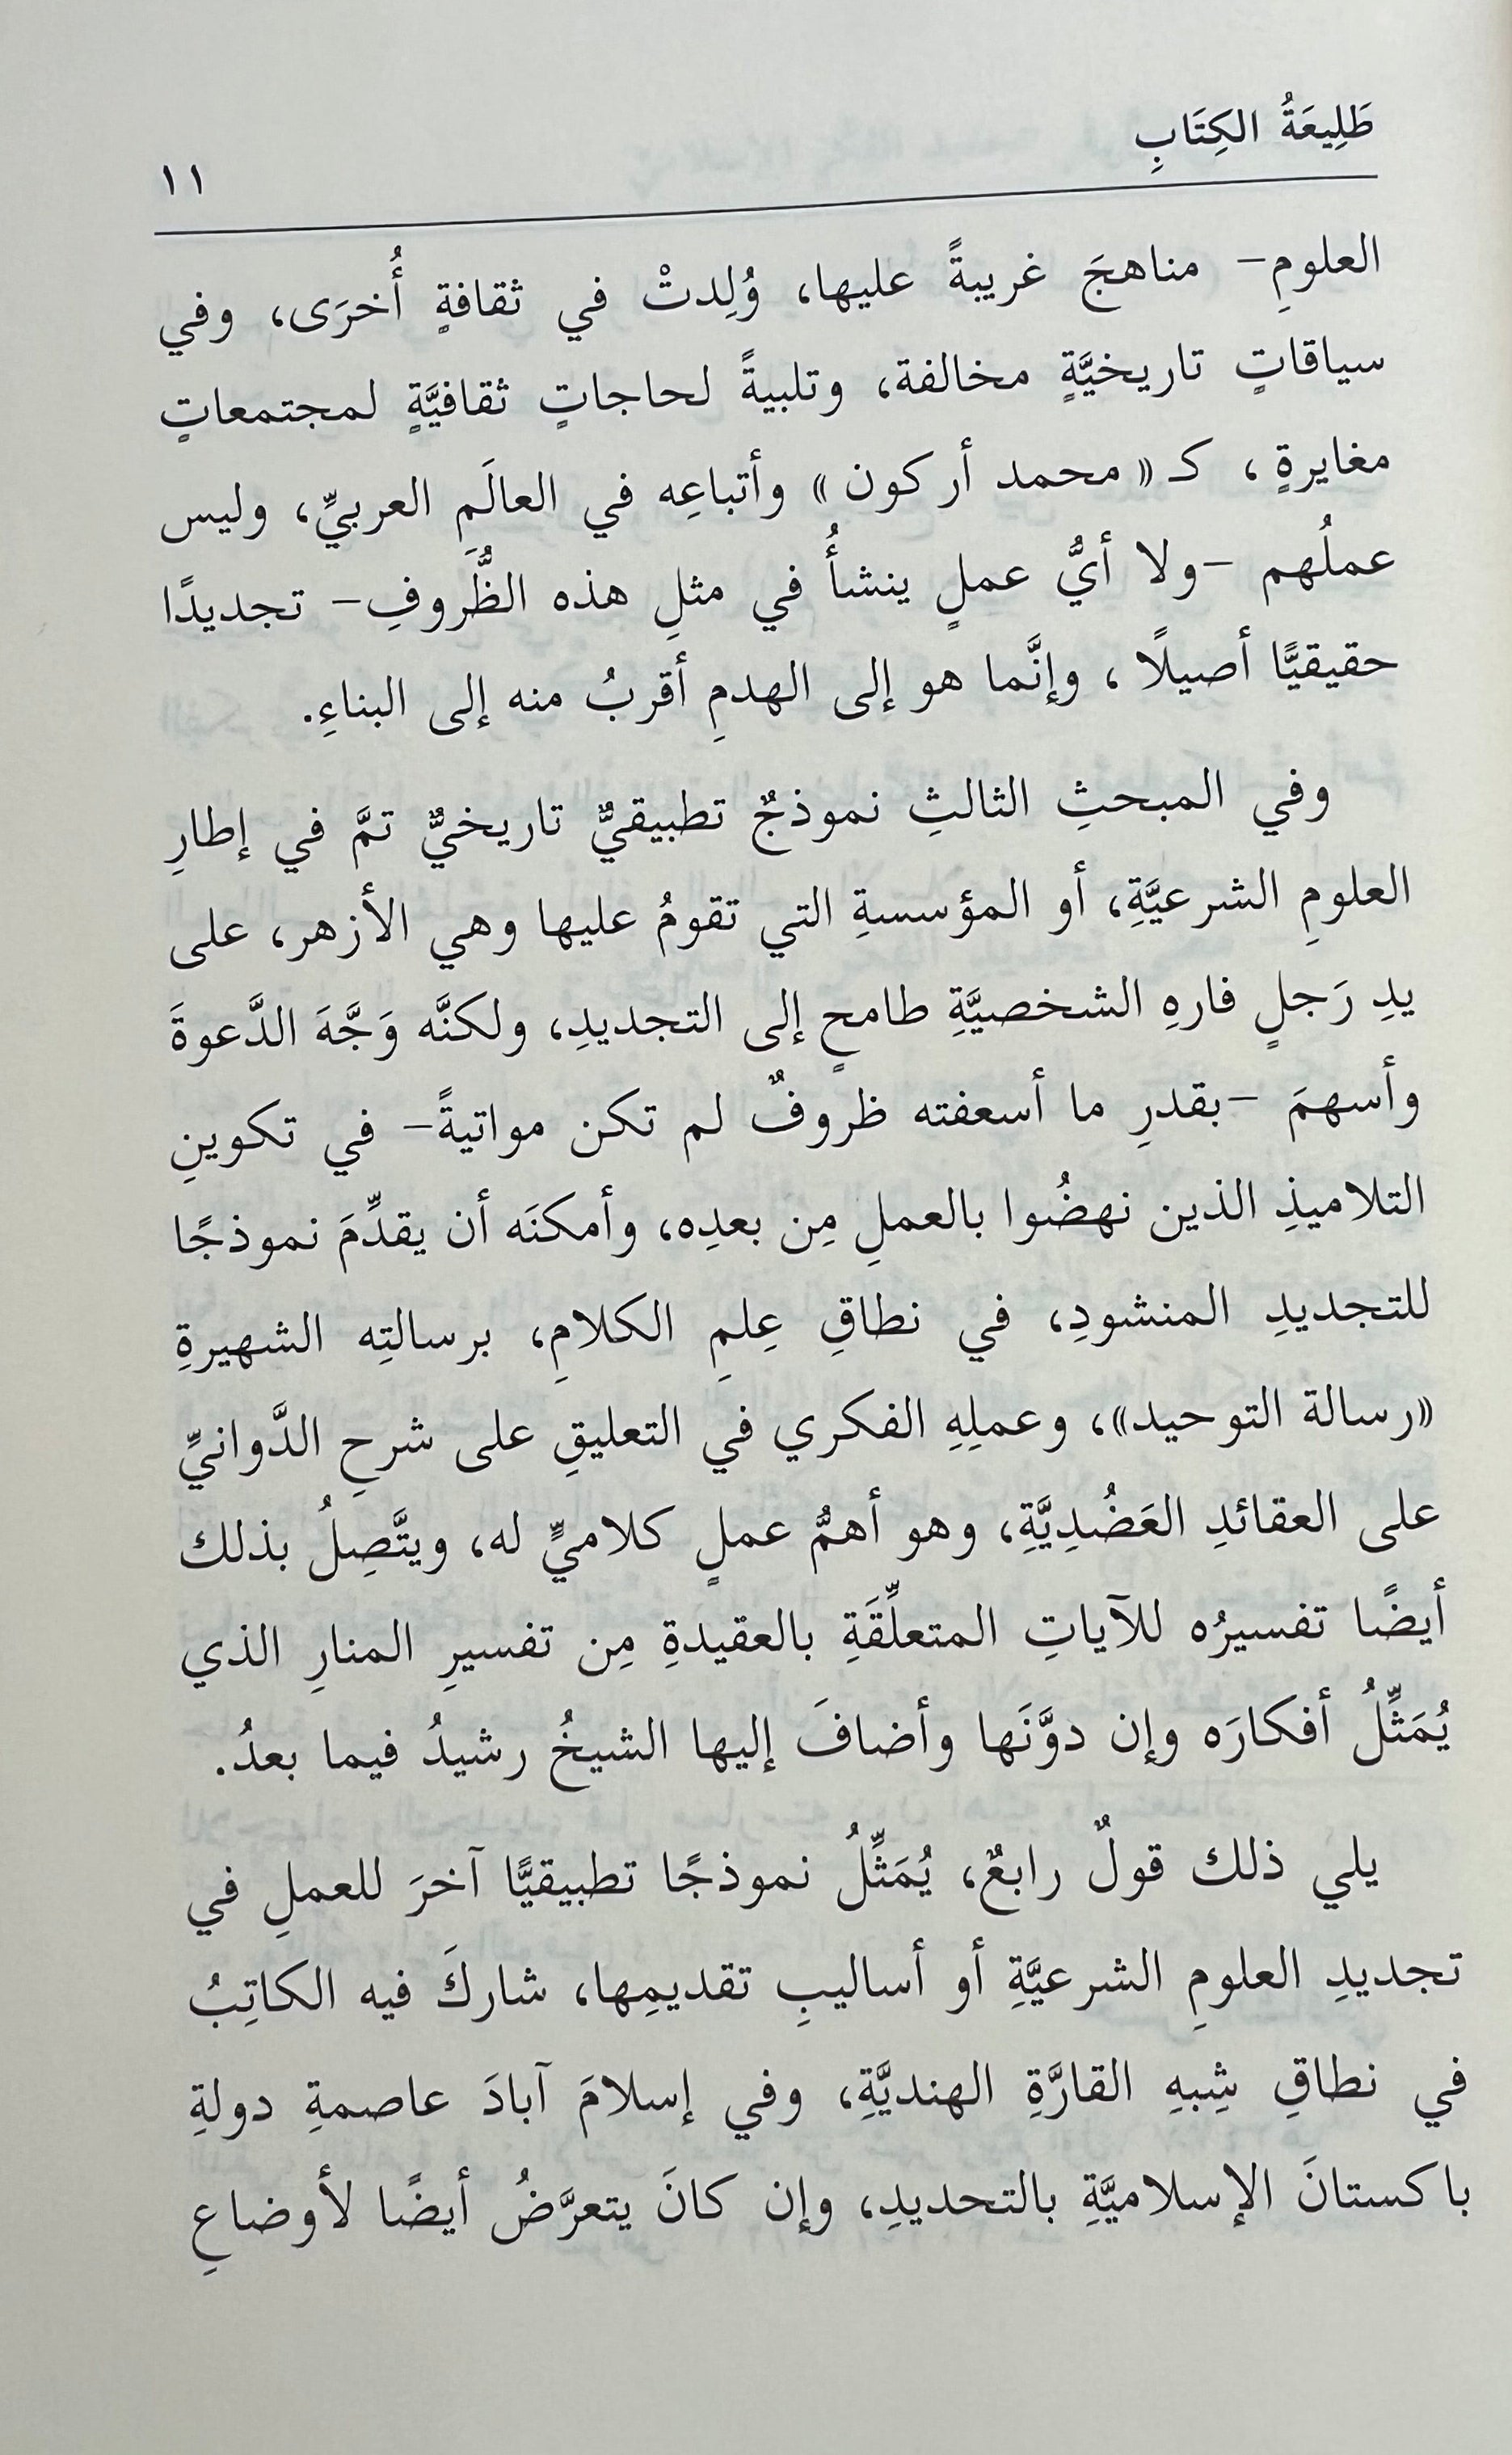 طَلِيعَةُ الكِتَابِ
١١
العلومِ- مناهجَ غريبةً عليها، وُلِدتْ في ثقافةٍ أُخرَى، وفي
سياقاتٍ تاريخيَّةٍ مخالفة، وتلبيةً لحاجاتٍ ثقافيَّةٍ لمجتمعاتٍ
مغايرةٍ ، كـ «محمد أركون» وأتباعِه في العالَم العربيِّ، وليس
عملُهم -ولا أيُّ عملٍ ينشأُ في مثلِ هذه الظُّروفِ- تجديدًا
حقيقيًّا أصيلًا ، وإنَّما هو إلى الهدمِ أقربُ منه إلى البناءِ.
وفي المبحثِ الثالثِ نموذجٌ تطبيقيٌّ تاريخيٌّ تمَّ في إطارِ
العلومِ الشرعيَّةِ، أو المؤسسةِ التي تقومُ عليها وهي الأزهر، على
يدِ رَجلٍ فارهِ الشخصيَّةِ طامحٍ إلى التجديدِ، ولكنَّه وَجَّهَ الدَّعوةَ
وأسهمَ -بقدرِ ما أسعفته ظروفٌ لم تكن مواتيةً- في تكوينِ
التلاميذِ الذين نهضُوا بالعملِ مِن بعدِه، وأمكنَه أن يقدِّمَ نموذجًا
للتجديدِ المنشودِ، في نطاقِ عِلمِ الكلامِ، برسالتِه الشهيرةِ
«رسالة التوحيد»، وعملِهِ الفكري في التعليقِ على شرحِ الدَّوانيِّ
على العقائدِ العَضُدِيَّةِ، وهو أهمُّ عملٍ كلاميٍّ له، ويتَّصِلُ بذلك
أيضًا تفسيرُه للآياتِ المتعلِّقَةِ بالعقيدةِ مِن تفسيرِ المنارِ الذي
يُمَثِّلُ أفكارَه وإن دوَّنَها وأضافَ إليها الشيخُ رشيدُ فيما بعدُ.
يلي ذلك قولٌ رابعٌ، يُمَثِّلُ نموذجًا تطبيقيًّا آخرَ للعملِ في
تجديدِ العلومِ الشرعيَّةِ أو أساليبِ تقديمِها، شاركَ فيه الكاتِبُ
في نطاقِ شِبهِ القارَّةِ الهنديَّةِ، وفي إسلامَ آبادَ عاصمةِ دولةِ
باكستانَ الإسلاميَّةِ بالتحديدِ، وإن كانَ يتعرَّضُ أيضًا لأوضاعِ